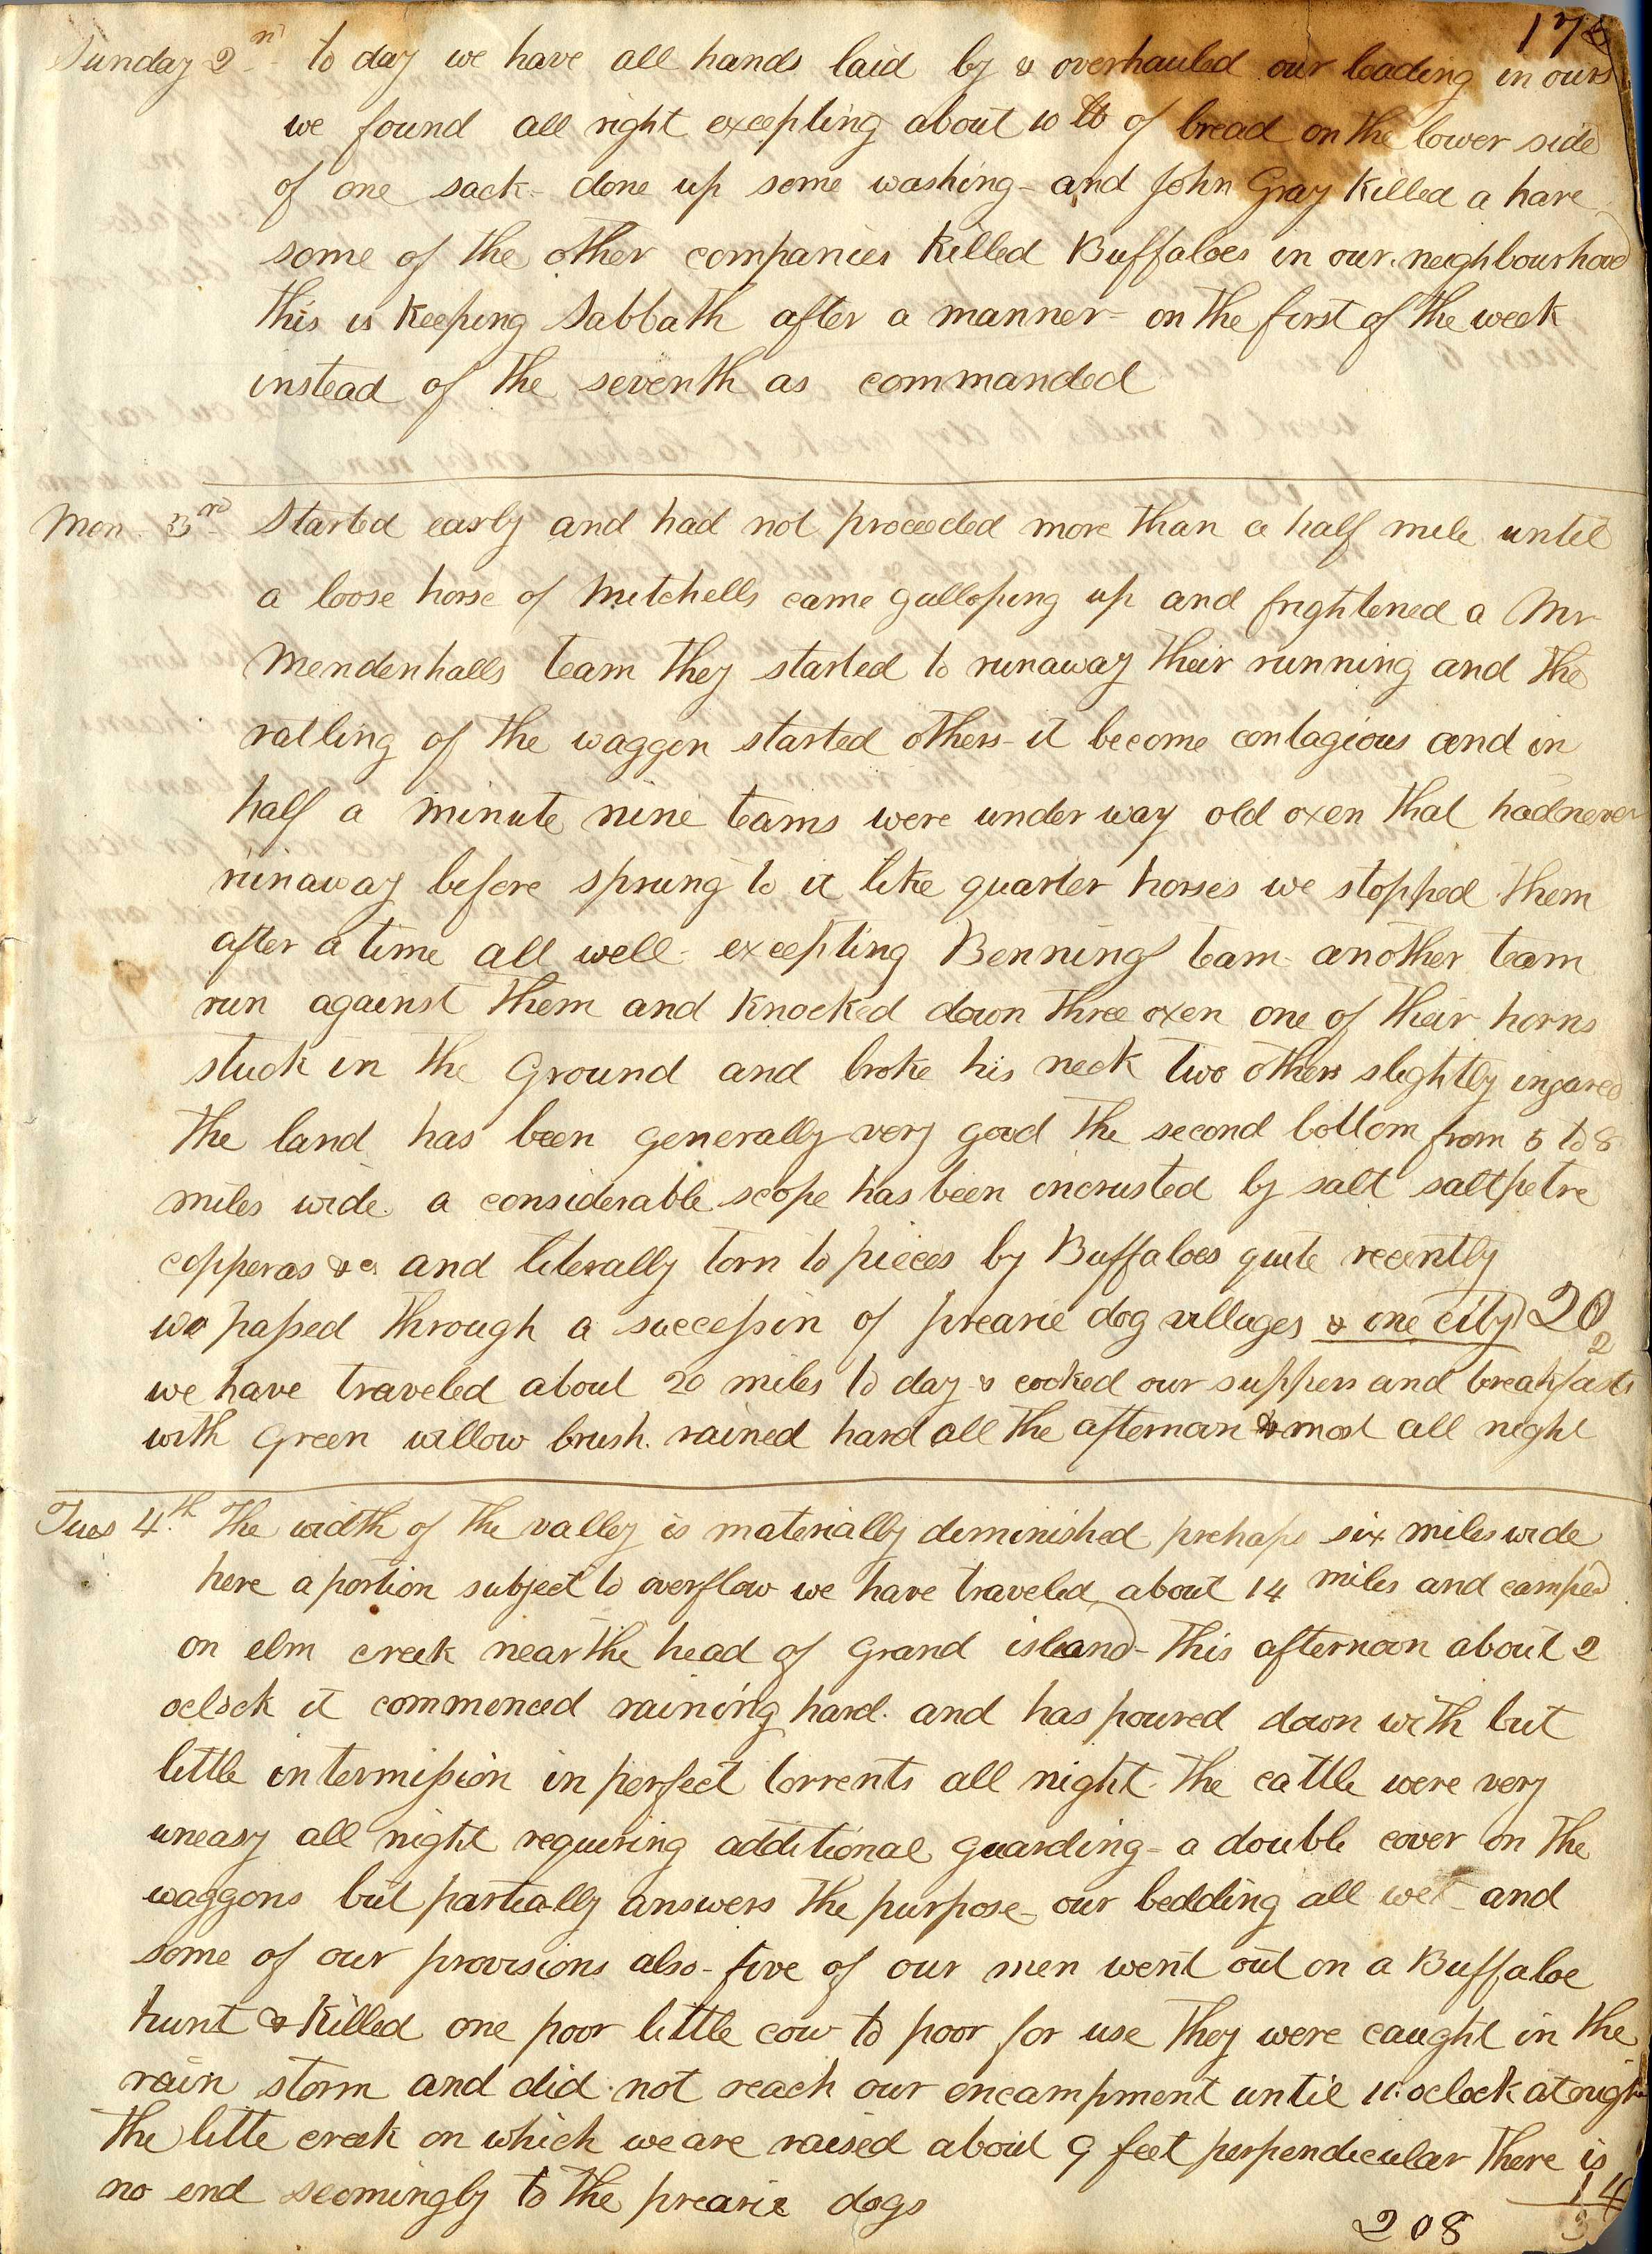 174
Sunday 2nd to day we have all hands laid by & overhauled our loading in ours
we found all right excepting about 10 lb of bread on the lower side
of one sack - done up some washing - and John Gray Killed a hare
some of the other companies Killed Buffaloes in our neighbourhood
this is Keeping Sabbath after a manner - on the first of the week
instead of the seventh as commanded
Mon. 3rd Started early and had not proceeded more than a half mile until
a loose horse of Mitchells came gulloping up and frightened a Mr
Mendenhalls team they started to runaway their running and the
ratling of the waggon started others - it become contagious and in
half a minute nine teams were under way old oxen that had never
runaway before sprung to it like quarter horses we stopped them
after a time all well - excepting Bennings team another team
run against them and Knocked down three oxen one of their horns
stuck in the Ground and broke his neck two others slightly injured
The land has been generally very good the second bottom from 5 to 8
miles wide. a considerable scope has been incrusted by salt saltpetre
copperas &c. and literally torn to pieces by Buffaloes quite recently
we passed through a successin of prearie dog villages & one city 20
2
we have traveled about 20 miles to day & cooked our suppers and breakfasts
with Green willow brush. rained hard all the afternoon & most all night
Tues 4.th The width of the valley is materially diminished prehaps six miles wide
here a portion subject to overflow we have traveled about 14 miles and camped
on elm creek near the head of Grand island - This afternoon about 2
oclock it commenced raining hard. and has poured down with but
little intermission in perfect torrents all night. The cattle were very
uneasy all night requiring additional guarding - a double cover on the
waggons but partially answers the purpose - our bedding all wet - and
some of our provisions also - five of our men went out on a Buffaloe
hunt & Killed one poor little cow to poor for use they were caught in the
rain storm and did not reach our encampment until 11 oclock at night
The litte creek on which we are raised about 9 feet perpendicular There is
no end seemingly to the prearie dogs
14
208